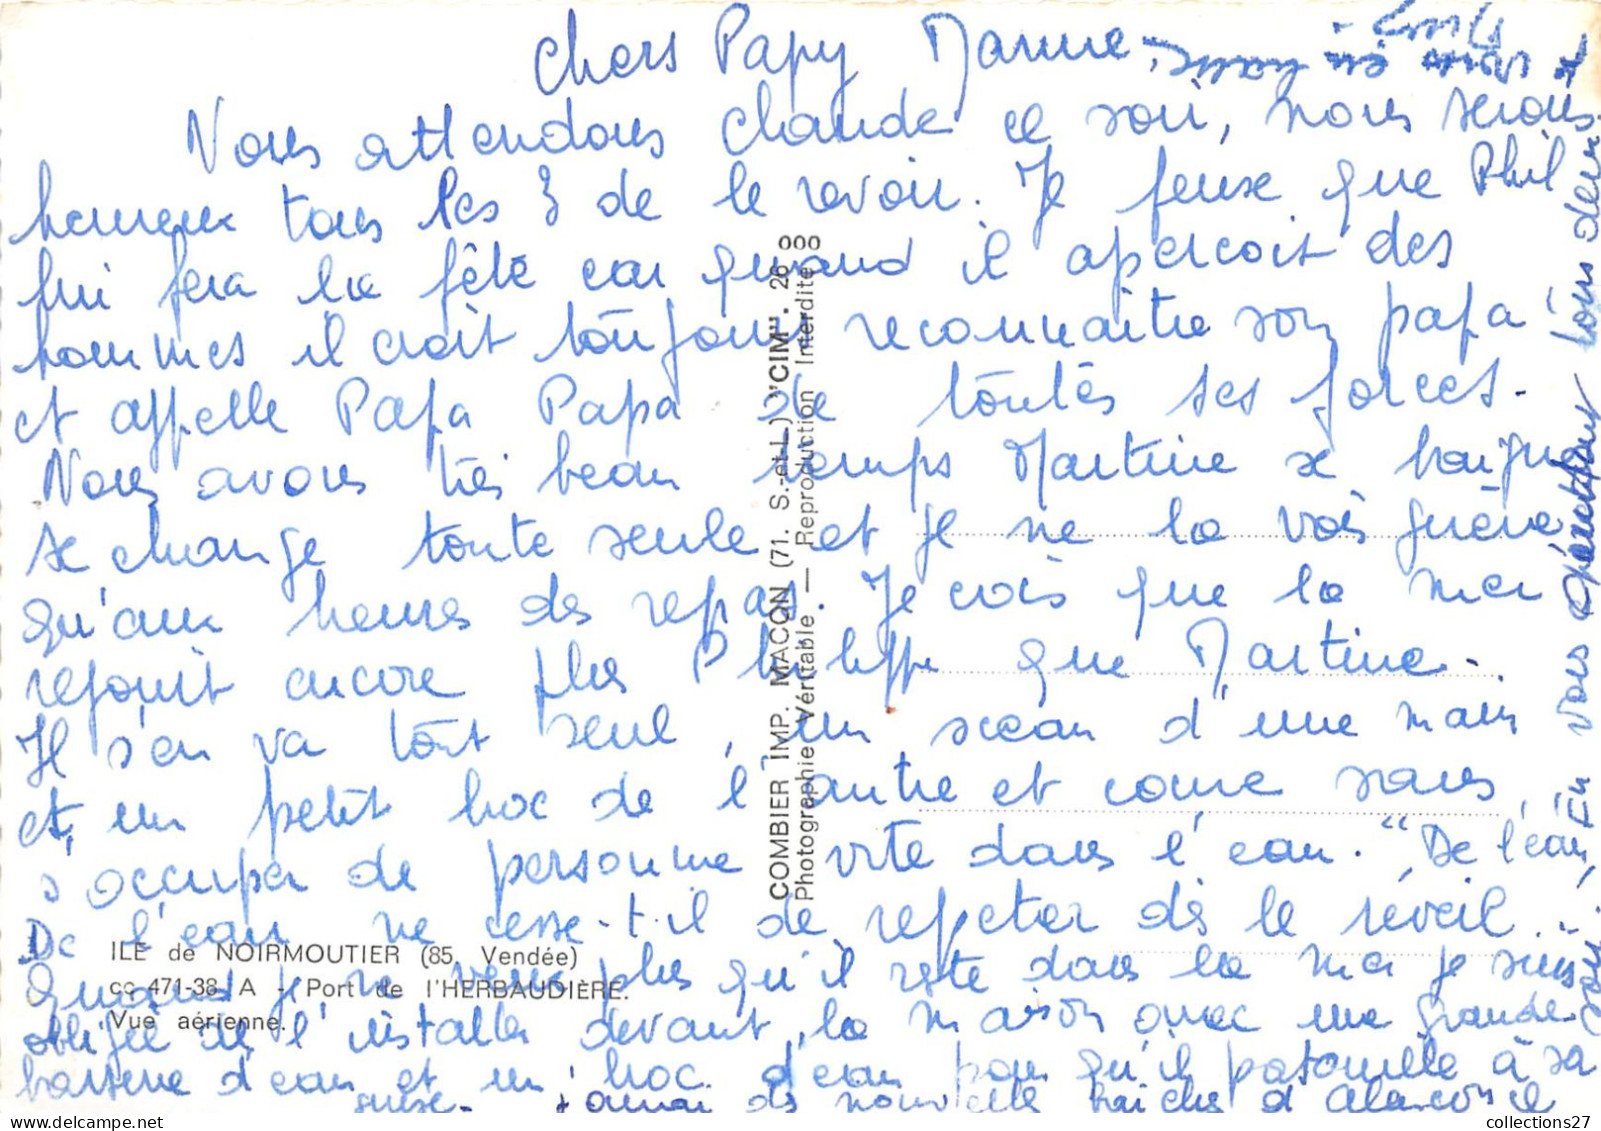 Chers Papy Manne.
Nous attendons Claude ce soir, nous serons
heureux tous les 3 de le revoir. Je pense que Phil
lui fera la fête car quand il apercoit des
hommes il croit toujours reconnaitre son papa
et appelle Papa Papa de toutes ses forces.
Nous avons très beau temps Martine se baigne
se change toute seule et je ne la vois guère
qu'aux heures des repas. Je crois que la mer
rejouit encore plus Philippe que Martine.
Il s'en va tout seul, un seau d'une main
et un petit broc de l'autre et court sans
s'occuper de personne vite dans l'eau. "De l'eau,
De l'eau ne cesse-t-il de repeter dès le réveil...
Quand je ne veux plus qu'il reste dans la mer je suis
obligée de l'installer devant la maison avec une grande
bassine d'eau et un broc d'eau pour qu'il patouille à sa
guise.
des nouvelles d'Alençon
En vous tous deux
vous
ILE de NOIRMOUTIER (85. Vendée)
cc 471-38 A - Port de l'HERBAUDIÈRE.
Vue aérienne.
COMBIER IMP. MACON (71. S.-et-L.) "CIM". 26 000
Photographie Véritable — Reproduction Interdite
collections27